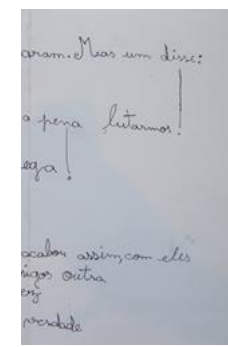 aram. Mas um disse:
a pena lutarmos!
ega!
acabou assim, com eles
igos outra
ez
verdade